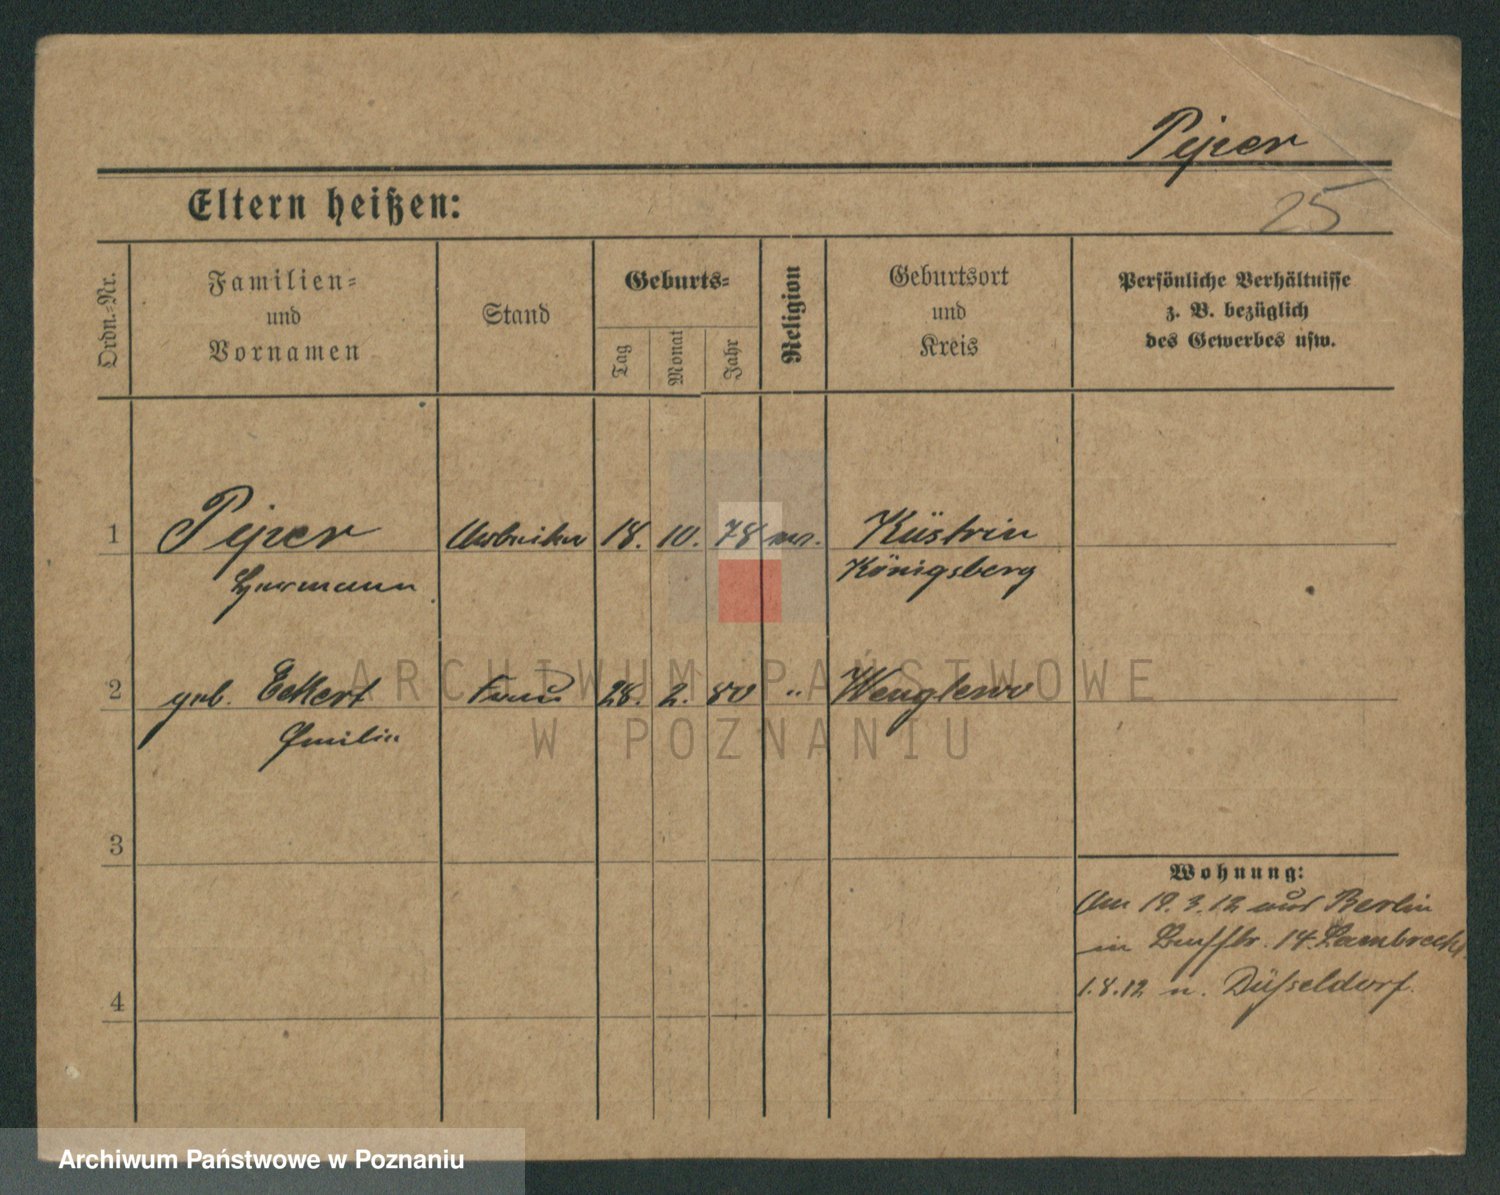 Pijper
25
Eltern heißen:
Ordn.-Nr.
Familien- und Vornamen
Stand
Geburts-
Tag
Monat
Jahr
Religion
Geburtsort und Kreis
Persönliche Verhältnisse
z. B. bezüglich
des Gewerbes usw.
1 Pijper Arbeiter 18. 10. 78 ev. Küstrin
Hermann Königsberg
2 geb. Eckert Frau 28. 2. 80 " Wenglewo
Emilie
3
Wohnung:
Am 19.3.12 aus Berlin
in 14 Lambrecht
4
1.8.12 n. Düsseldorf.
ARCHIWUM PAŃSTWOWE
W POZNANIU
Archiwum Państwowe w Poznaniu